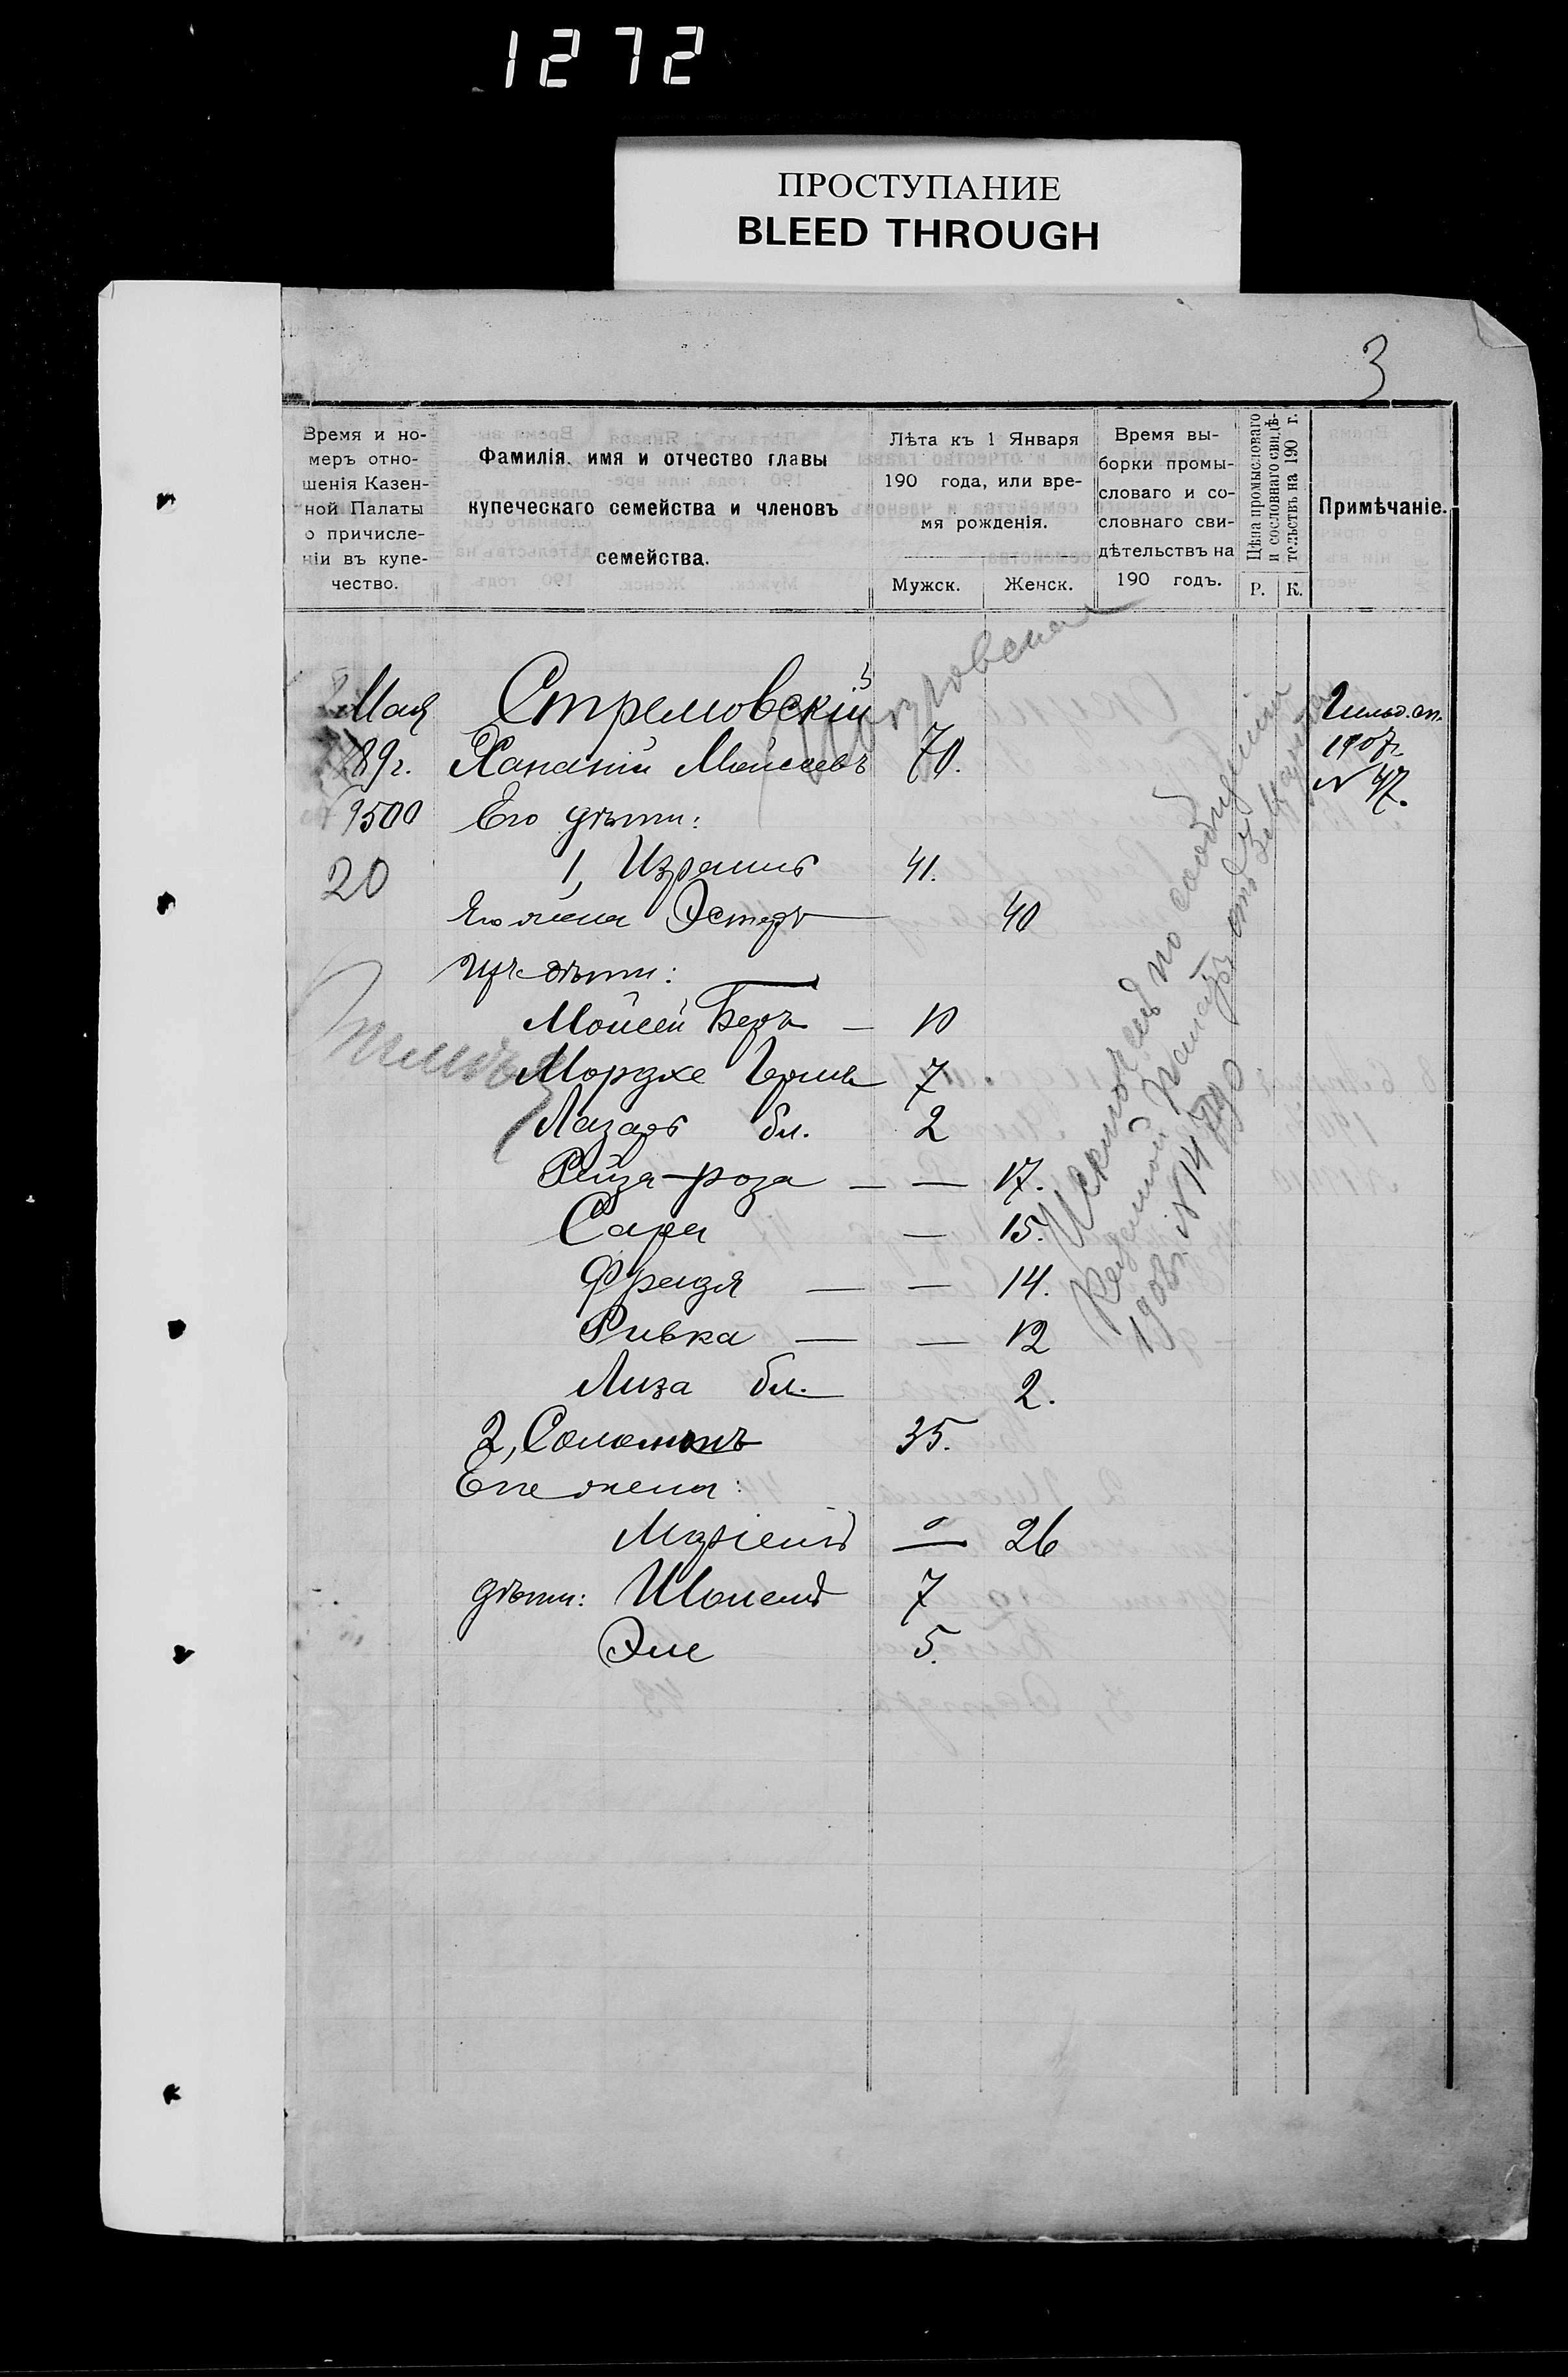 1272
ПРОСТУПАНИЕ
BLEED THROUGH
3
Время и но-
меръ отно-
шенія Казен-
ной Палаты
о причисле-
ніи въ купе-
чество.
Фамилія, имя и отчество главы
купеческаго семейства и членовъ
семейства.
Лѣта къ 1 Января
190 года, или вре-
мя рожденія.
Мужск.
Женск.
Время вы-
борки промы-
словаго и со-
словнаго сви-
дѣтельствъ на
190 годъ.
Цѣна промысловаго
и сословнаго свидѣ-
тельствъ на 190 г.
Р.
К.
Примѣчаніе.
Мая
89 г.
9500
20
Стрелювскій
Хананій Моисеевъ 70.
Его дѣти:
1, Израиль 41.
Его жена Эстеръ 40
Ихъ дѣти:
Мойсей Беръ — 10
Мордхе 7
Лазарь бл. 2
Рейза-роза — — 17.
Сара — 15.
Фрейдя — — 14.
Ривка — — 12
Лиза бл. 2.
2, Соломонъ 35.
Его жена:
Маріемъ — 26
дѣти: Шолемъ 7
Эле 5.
Гильд. сп.
1907 г.
№ 47.
Исключенъ по сообщенію
Казенной Палаты отъ
1908 г. №